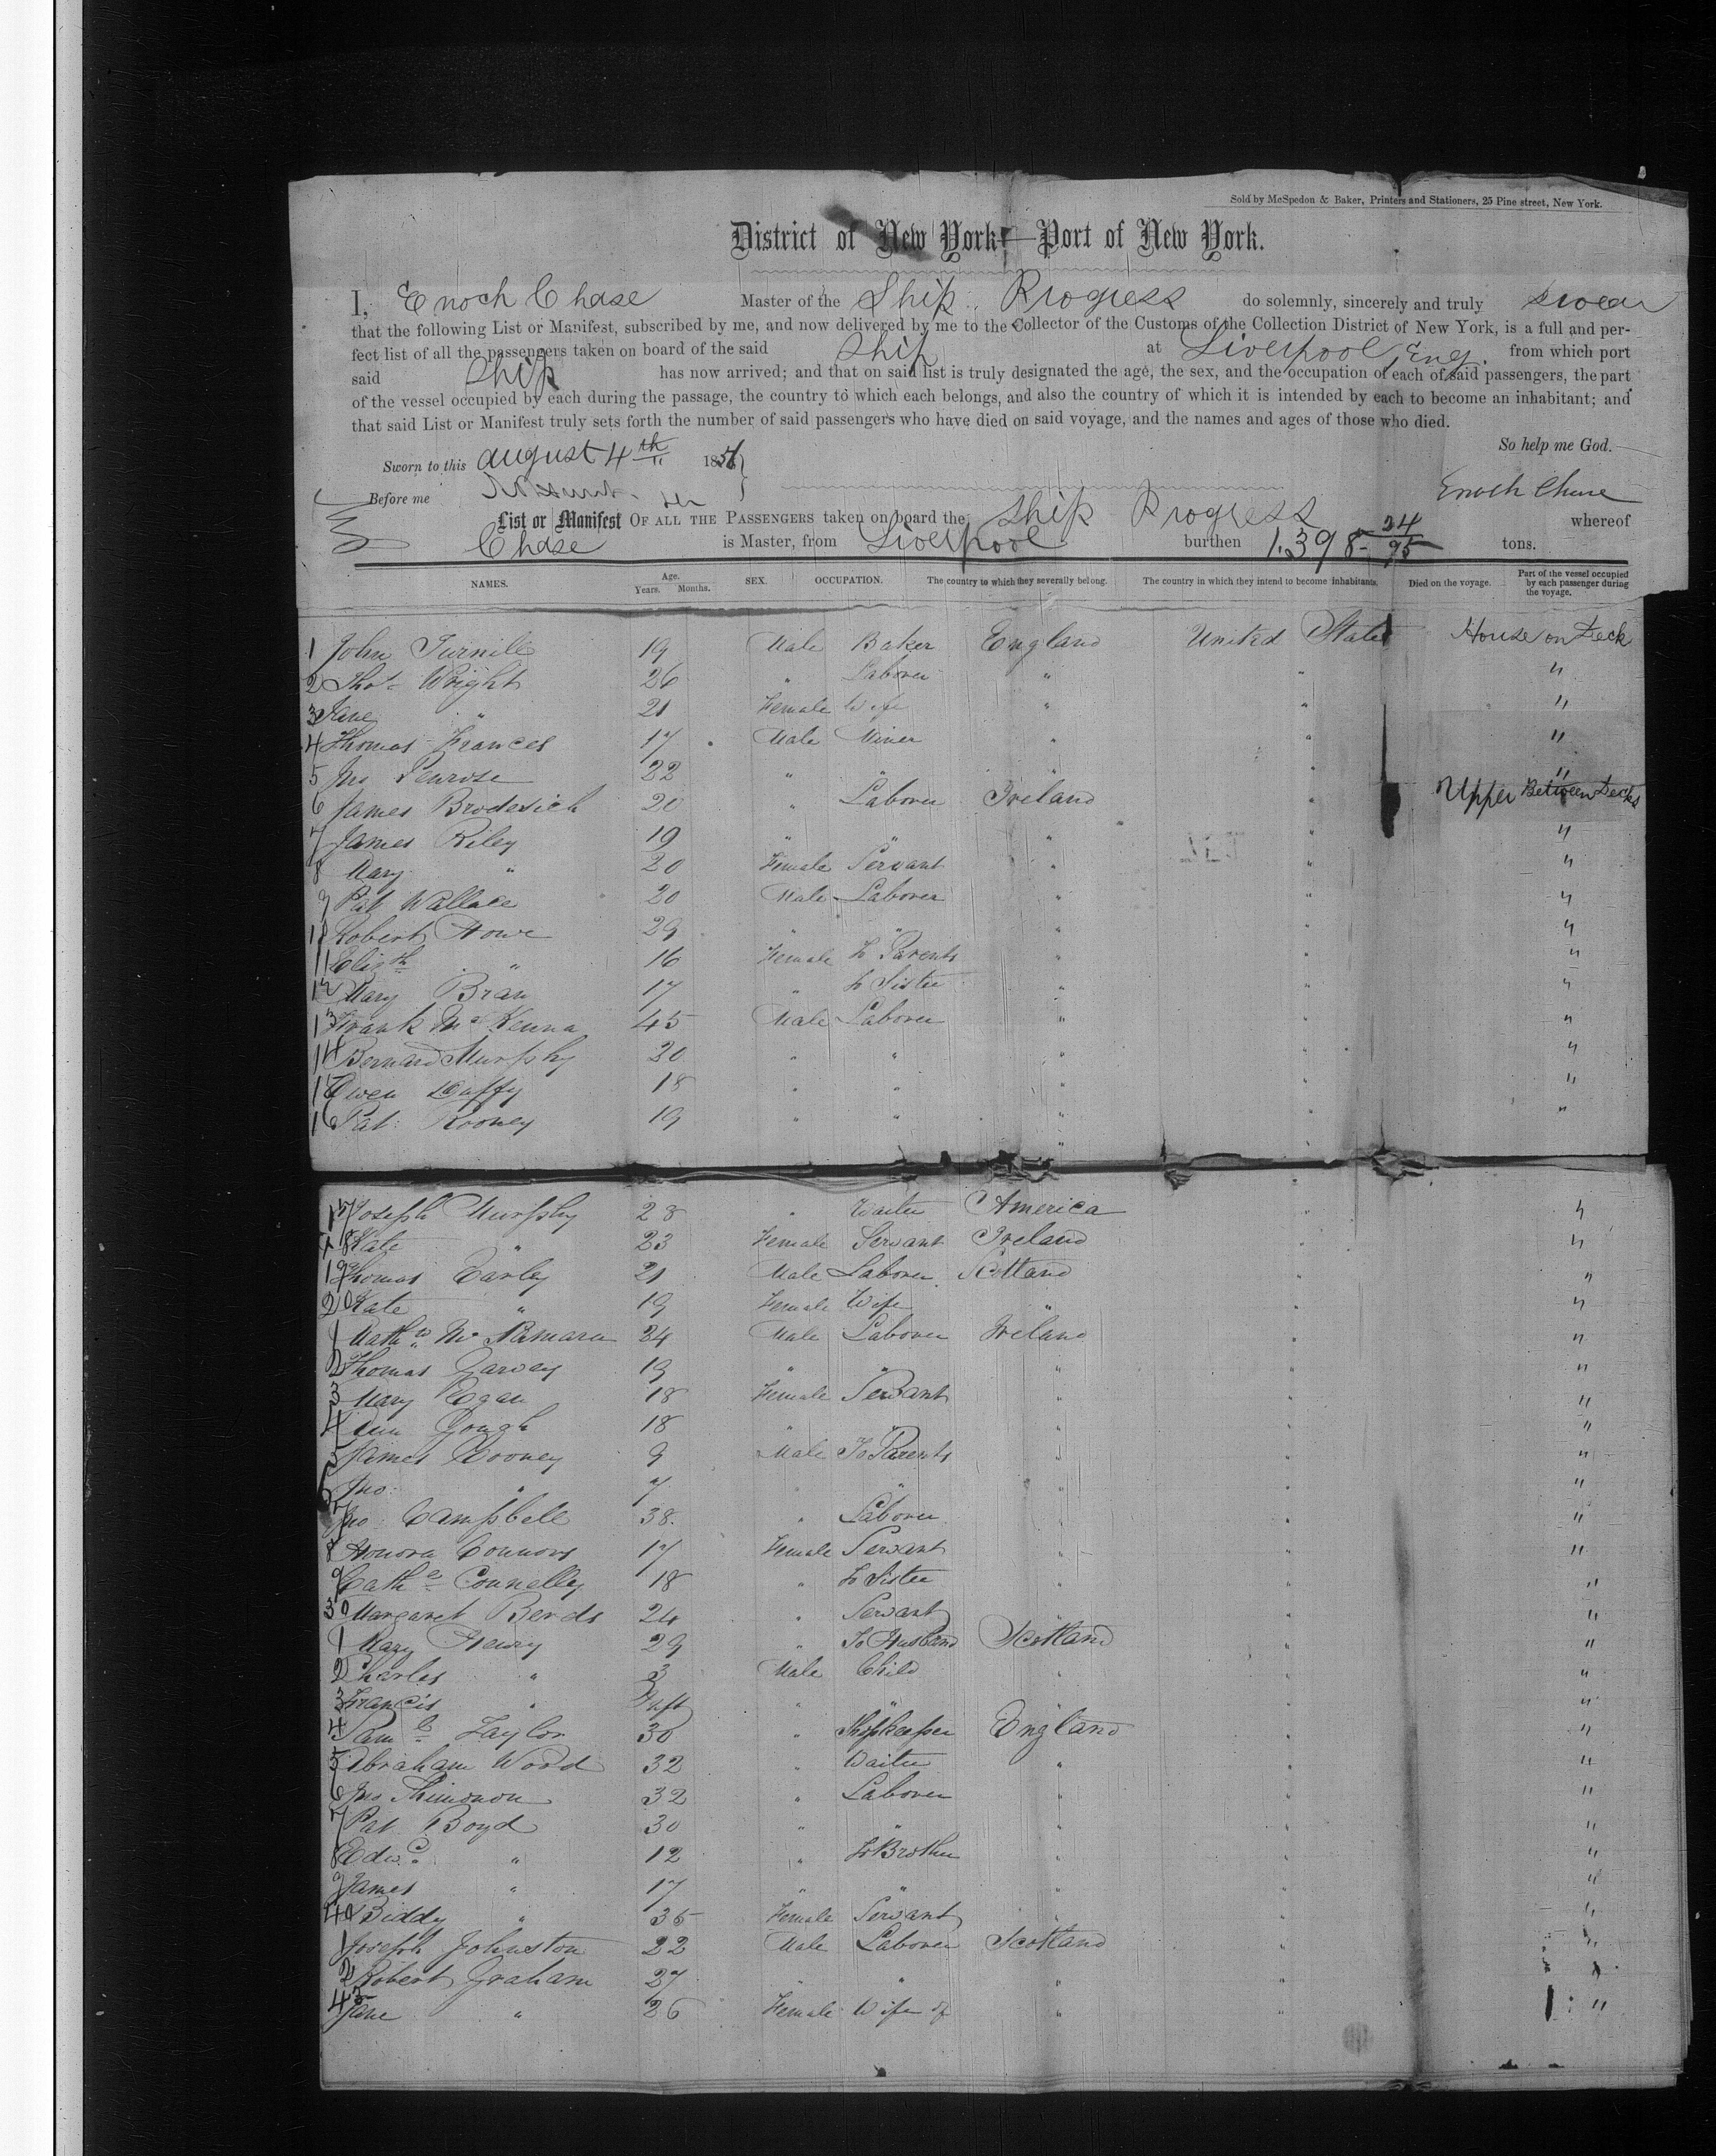 Sold by McSpedon & Baker, Printers and Stationers, 25 Pine street, New York.
District of New York—Port of New York.
I, Enoch Chase Master of the Ship Progress do solemnly, sincerely and truly swear
that the following List or Manifest, subscribed by me, and now delivered by me to the Collector of the Customs of the Collection District of New York, is a full and per-
fect list of all the passengers taken on board of the said Ship at Liverpool, Eng. from which port
said Ship has now arrived; and that on said list is truly designated the age, the sex, and the occupation of each of said passengers, the part
of the vessel occupied by each during the passage, the country to which each belongs, and also the country of which it is intended by each to become an inhabitant; and
that said List or Manifest truly sets forth the number of said passengers who have died on said voyage, and the names and ages of those who died.
So help me God.
Sworn to this August 4th 185
Before me Enoch Chase
List or Manifest OF ALL THE PASSENGERS taken on board the Ship Progress whereof
Chase is Master, from Liverpool burthen 1.398 24/95 tons.
NAMES. Age. Years. Months. SEX. OCCUPATION. The country to which they severally belong. The country in which they intend to become inhabitants. Died on the voyage. Part of the vessel occupied by each passenger during the voyage.
1 John 19 Male Baker England United States House on Deck
2 Thos Wright 26 " Laborer " " "
3 Jane " 21 Female Wife " " "
4 Thomas Frances 17 Male Miner " " "
5 Jno Penrose 22 " " " " "
6 James Broderick 20 " Laborer Ireland " Upper Between Decks
7 James Riley 19 " " " " "
8 Mary " 20 Female Servant " " "
9 Pat Wallace 20 Male Laborer " " "
10 Robert Howe 29 " " " " "
11 Elizth " 16 Female to Parents " " "
12 Mary 17 " to Sister " " "
13 Frank McKenna 45 Male Laborer " " "
14 Bernard Murphy 20 " " " " "
15 Owen Duffy 18 " " " " "
16 Pat Rooney 19 " " " " "
17 Joseph Murphy 28 " Waiter America " "
18 Kate " 23 Female Servant Ireland " "
19 Thomas Earley 21 Male Laborer Scotland " "
20 Kate " 19 Female Wife " " "
1 Mathw McNamara 24 Male Laborer Ireland " "
2 Thomas Garvey 19 " " " " "
3 Mary Egan 18 Female Servant " " "
4 Ann Gough 18 " " " " "
5 James Cooney 9 Male To Parents " " "
6 Jno: " 7 " " " " "
7 Jno: Campbell 38 " Laborer " " "
8 Honora Connors 17 Female Servant " " "
9 Cathe Connelly 18 " to Sister " " "
30 Margaret 24 " Servant " " "
1 Mary Henry 29 " To Husband Scotland " "
2 Charles " 3 Male Child " " "
3 Francis " Inft " " " " "
4 Saml Taylor 30 " Shopkeeper England " "
5 Abraham Wood 32 " Waiter " " "
6 Jno 32 " Laborer " " "
7 Pat Boyd 30 " " " " "
8 Edwd " 12 " to Brother " " "
9 James " 17 " " " " "
40 Biddy " 35 Female Servant " " "
1 Joseph Johnston 22 Male Laborer Scotland " "
2 Robert Graham 27 " " " " "
43 Jane " 26 Female Wife of " " "